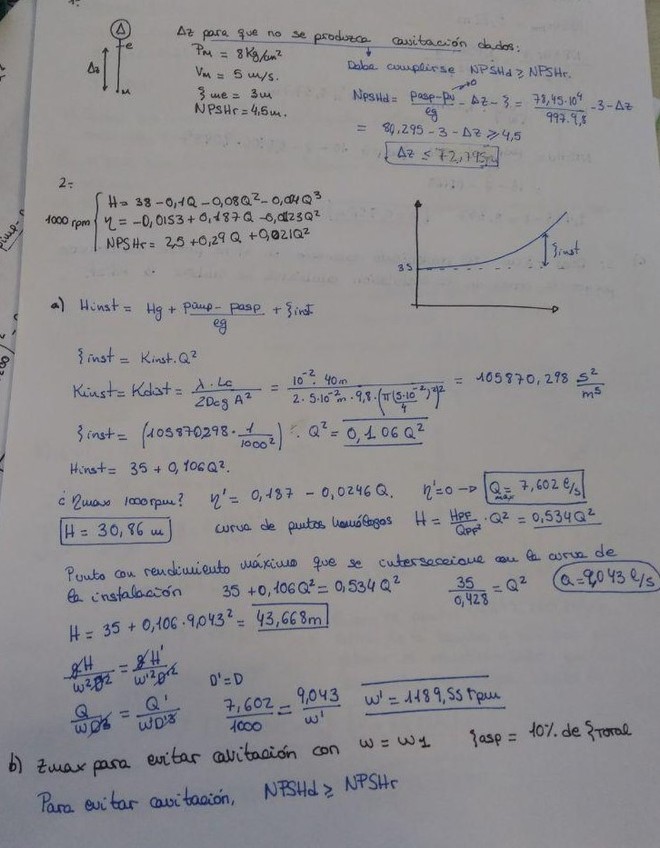 1.
Δz para que no se produzca cavitación dados:
PM = 8 Kg/cm²
VM = 5 m/s.
ξme = 3m
NPSHr = 4,5m.
Δ
e
Δz
M
Debe cumplirse NPSHd ≥ NPSHr.
NPSHd = (pasp - pv)/(ρg) - Δz - ξ = 78,45·10⁴/(997·9,8) - 3 - Δz
= 80,295 - 3 - Δz ≥ 4,5
Δz ≤ 72,795m
2.-
1000 rpm { H = 38 - 0,1Q - 0,08Q² - 0,04Q³
η = -0,0153 + 0,187Q - 0,0123Q²
NPSHr = 2,5 + 0,29Q + 0,021Q²
35
ξinst
a) Hinst = Hg + (pimp - pasp)/(ρg) + ξinst
ξinst = Kinst·Q²
Kinst = Kdist = λ·Lc/(2DcgA²) = 10⁻²·40m/(2·5·10⁻²m·9,8·(π(5·10⁻²)²/4)²) = 105870,298 s²/m⁵
ξinst = (105870,298 · 1/1000²) · Q² = 0,106Q²
Hinst = 35 + 0,106Q².
¿ηmax 1000rpm? η' = 0,187 - 0,0246Q. η'=0 → Qmax = 7,602 ℓ/s
H = 30,86 m curva de puntos homólogos H = HPF/QPF² · Q² = 0,534Q²
Punto con rendimiento máximo que se interseccione con la curva de
la instalación 35 + 0,106Q² = 0,534Q² 35/0,428 = Q² Q = 9,043 ℓ/s
H = 35 + 0,106·9,043² = 43,668m
gH/(w²D²) = gH'/(w'²D'²) D' = D
Q/(wD³) = Q'/(w'D'³) 7,602/1000 = 9,043/w' w' = 1189,55 rpm
b) zmax para evitar cavitación con w = w1 ξasp = 10% de ξTOTAL
Para evitar cavitación, NPSHd ≥ NPSHr